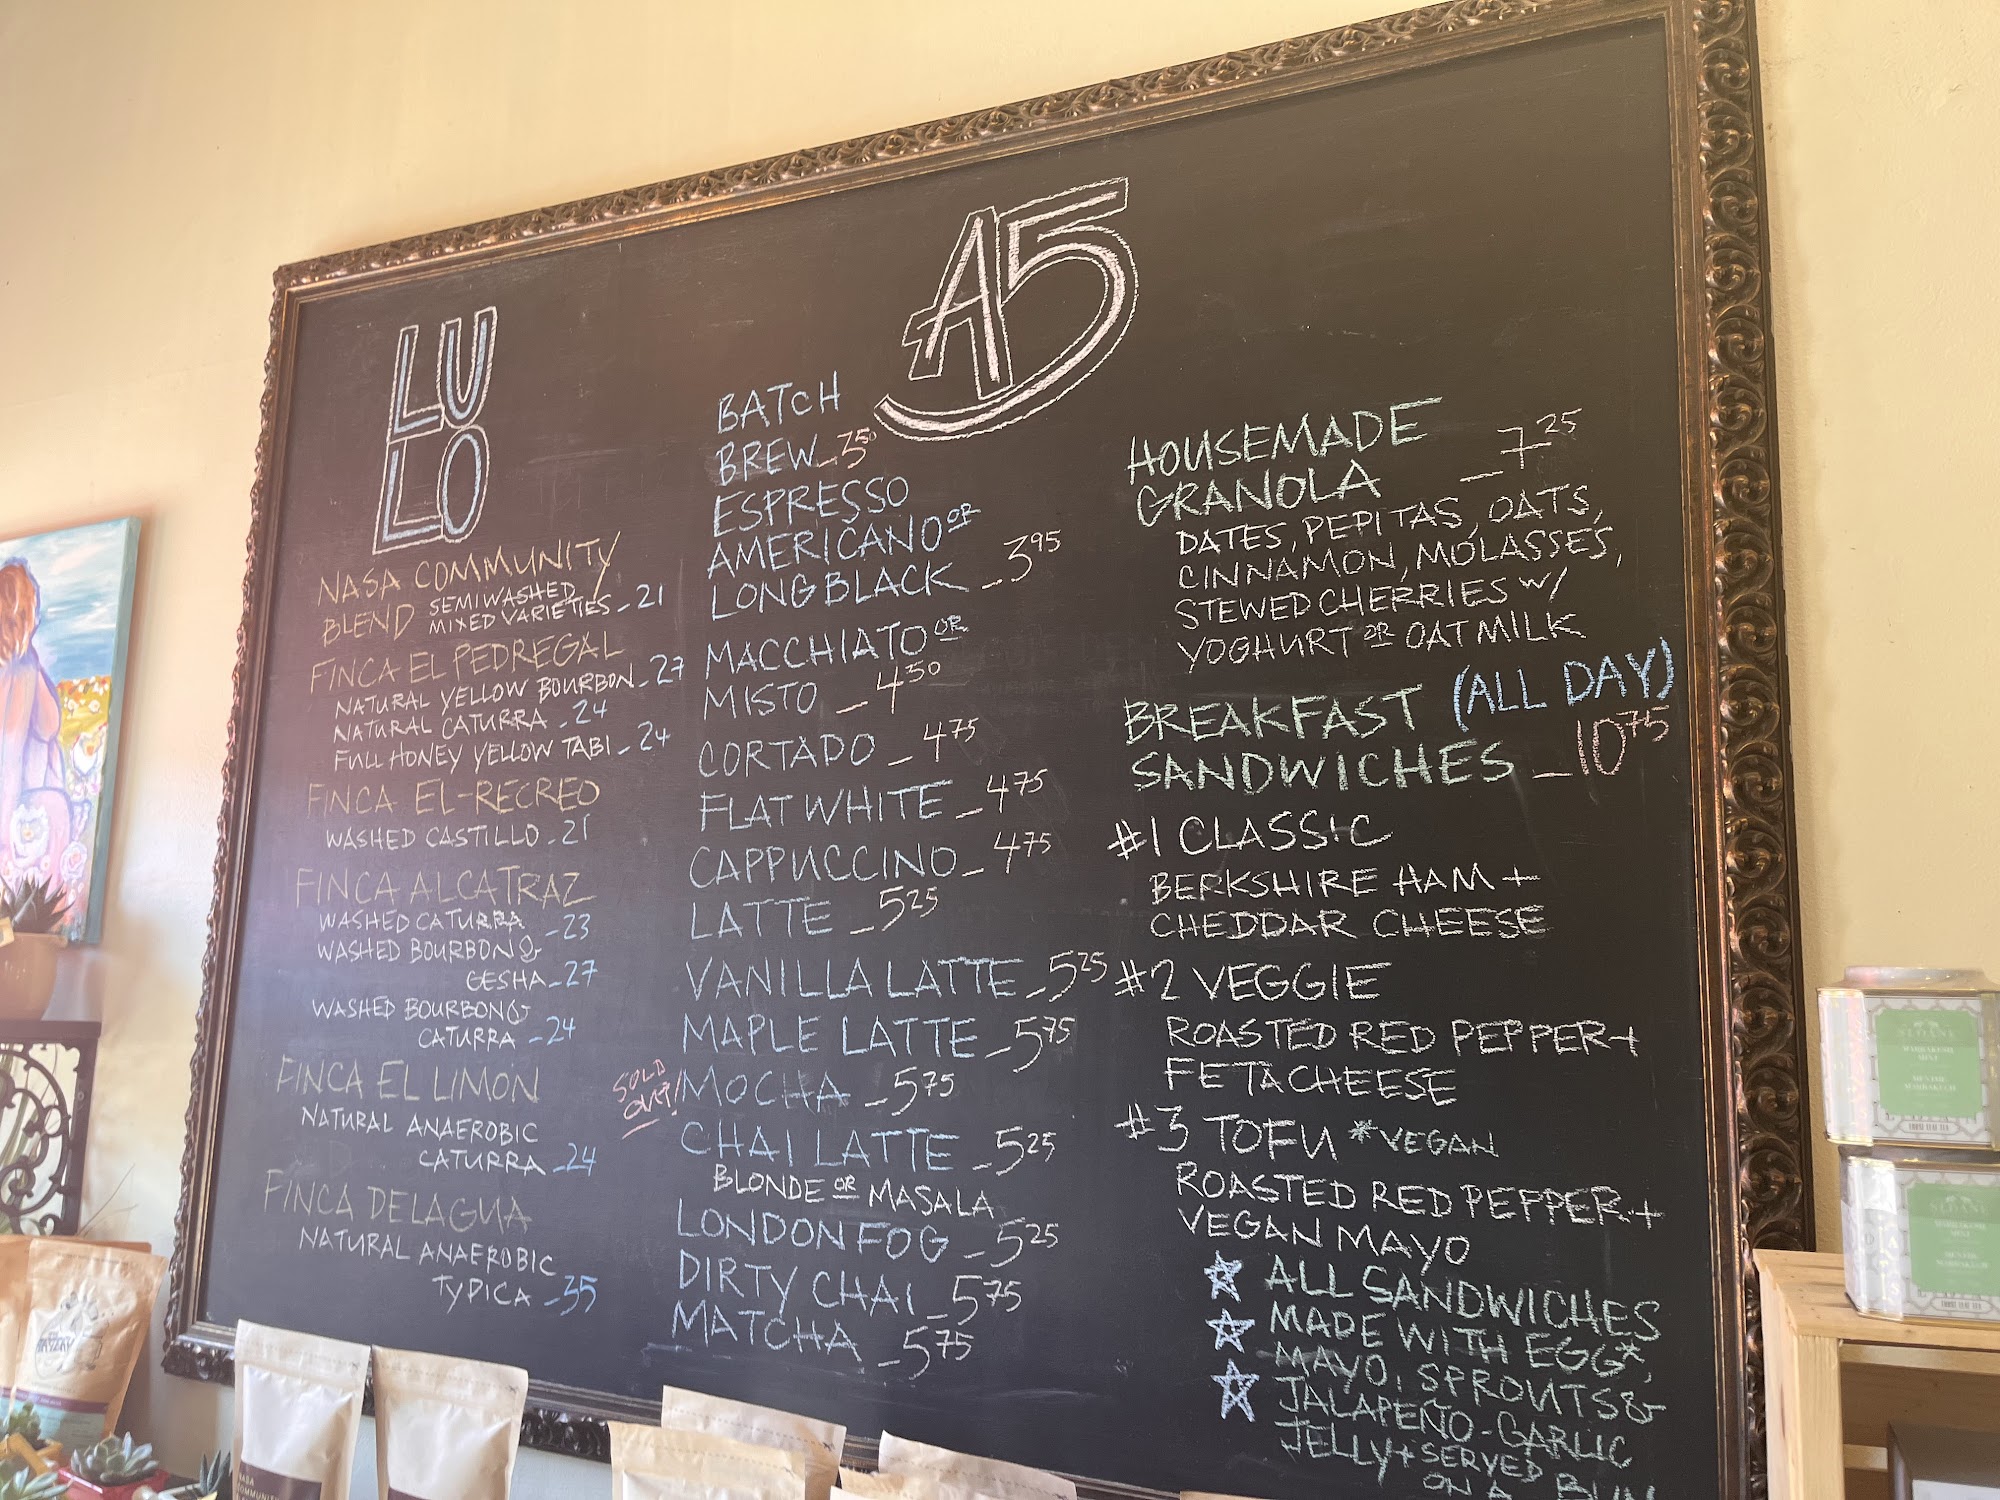 LU
LO
NASA COMMUNITY
BLEND SEMIWASHED
MIXED VARIETIES - 21
FINCA EL PEDREGAL
NATURAL YELLOW BOURBON - 27
NATURAL CATURRA - 24
FULL HONEY YELLOW TABI - 24
FINCA EL-RECREO
WASHED CASTILLO - 21
FINCA ALCATRAZ
WASHED CATURRA - 23
WASHED BOURBON &
GESHA - 27
WASHED BOURBON &
CATURRA - 24
FINCA EL LIMON
NATURAL ANAEROBIC
CATURRA - 24
FINCA DELAGUA
NATURAL ANAEROBIC
TYPICA - 35
A5
BATCH
BREW - 3.50
ESPRESSO
AMERICANO OR
LONG BLACK - 3.95
MACCHIATO OR
MISTO - 4.50
CORTADO - 4.75
FLAT WHITE - 4.75
CAPPUCCINO - 4.75
LATTE - 5.25
VANILLA LATTE - 5.25
MAPLE LATTE - 5.75
SOLD
OUT!
MOCHA - 5.75
CHAI LATTE - 5.25
BLONDE OR MASALA
LONDON FOG - 5.25
DIRTY CHAI - 5.75
MATCHA - 5.75
HOUSEMADE
GRANOLA - 7.25
DATES, PEPITAS, OATS,
CINNAMON, MOLASSES,
STEWED CHERRIES W/
YOGHURT OR OAT MILK
BREAKFAST (ALL DAY)
SANDWICHES - 10.75
#1 CLASSIC
BERKSHIRE HAM +
CHEDDAR CHEESE
#2 VEGGIE
ROASTED RED PEPPER +
FETA CHEESE
#3 TOFU *VEGAN
ROASTED RED PEPPER +
VEGAN MAYO
ALL SANDWICHES
MADE WITH EGG*,
MAYO, SPROUTS &
JALAPEÑO-GARLIC
JELLY + SERVED
ON A BUN
SLOANE
MARRAKESH
MINT
MENTHE
MARRAKECH
LOOSE LEAF TEA
SLOANE
MARRAKESH
MINT
MENTHE
MARRAKECH
LOOSE LEAF TEA
NASA
COMMUNITY